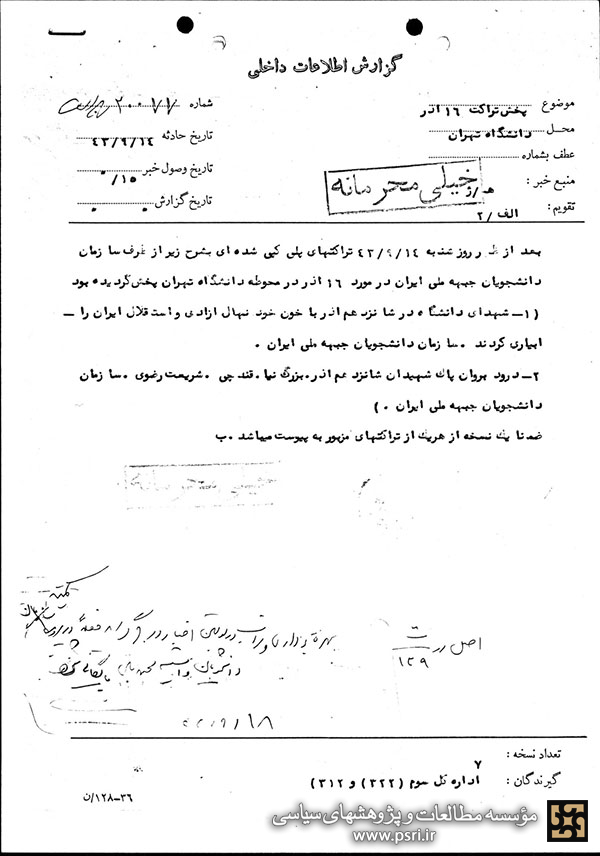 گزارش اطلاعات داخلی
موضوع پخش تراکت ۱۶ اذر
محل دانشگاه تهران
عطف بشماره
منبع خبر :
تقویم : الف/۲
شماره ۲۰۰۷۷
تاریخ حادثه ۴۳/۹/۱۴
تاریخ وصول خبر ۱۵/۰
تاریخ گزارش
خیلی محرمانه
بعد از ظهر روز شنبه ۴۳/۹/۱۴ تراکتهای پلی کپی شده ای بشرح زیر از طرف سازمان
دانشجویان جبهه ملی ایران در مورد ۱۶ اذر در محوطه دانشگاه تهران پخش گردیده بود
(۱ـ شهدای دانشگاه در شانزدهم اذر با خون خود نهال ازادی و استقلال ایران را ـ
ابیاری کردند . سازمان دانشجویان جبهه ملی ایران .
۲ـ درود بروان پاك شهیدان شانزدهم اذر. بزرگ نیا . قندچی . شریعت رضوی . سازمان
دانشجویان جبهه ملی ایران . )
ضمنا یك نسخه از هریك از تراکتهای مزبور به پیوست میباشد . ب
اصل در ت
۱۲۹
۴۳/۹/۱۸
تعداد نسخه : ۷
گیرندگان : اداره کل سوم (۳۲۲) و ۳۱۲)
۳۶–۱۲۸/ن
مؤسسه مطالعات و پژوهشهای سیاسی
www.psri.ir